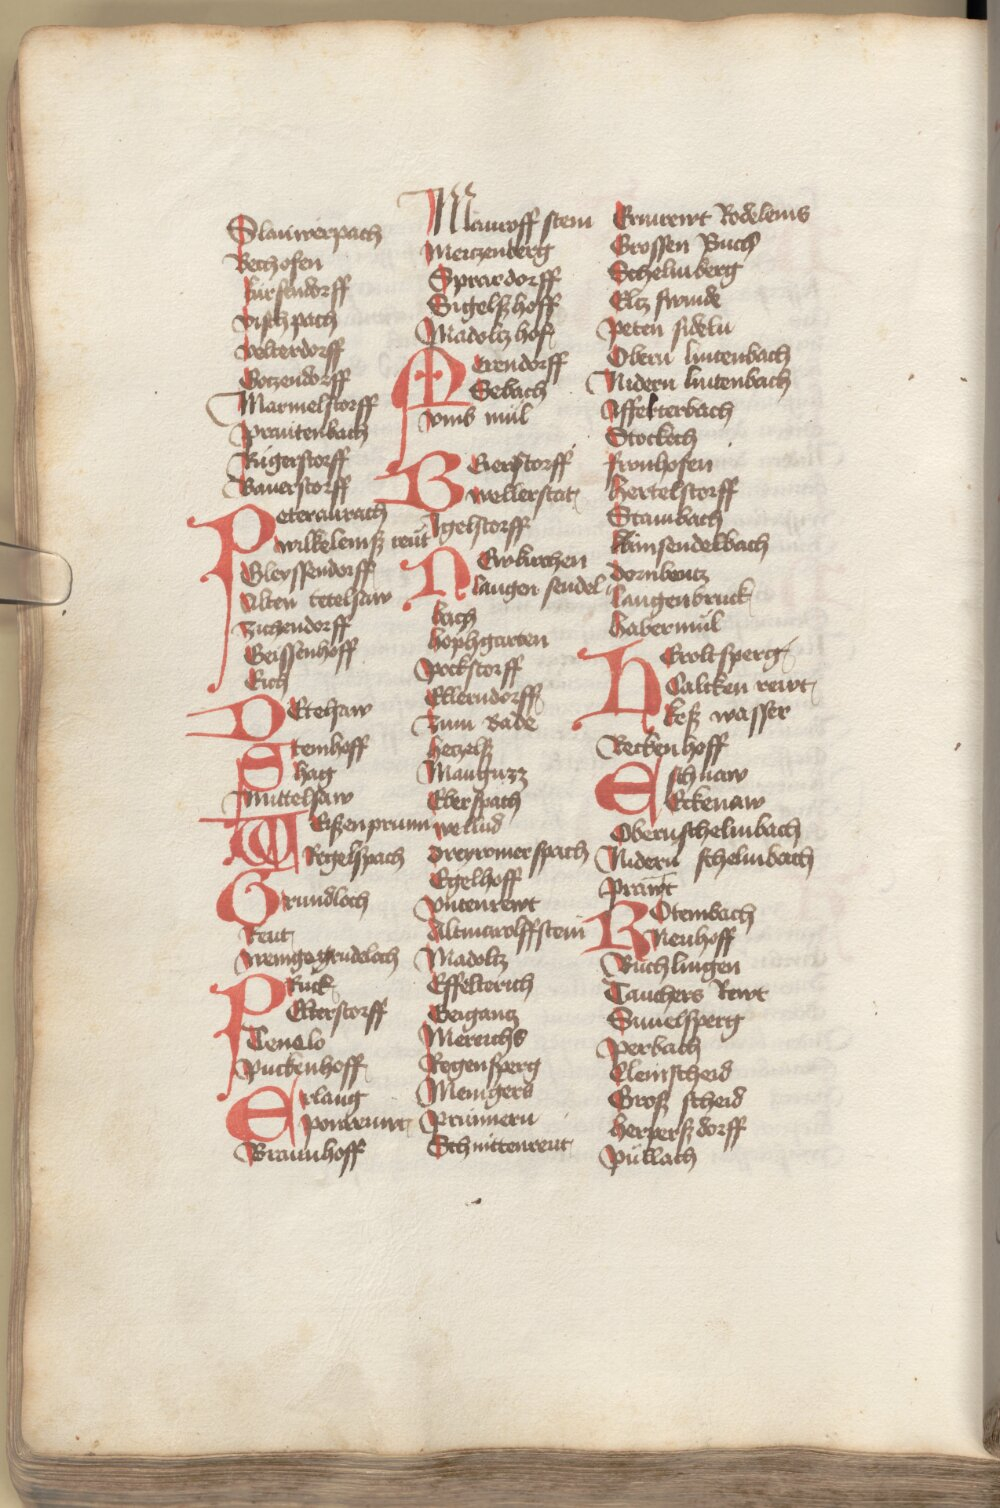 Slauwerpach
Bechofen
Fürsendorff
Vischpach
Velterdorff
Gotzendorff
Marmelstorff
Prautenbach
Rügerstorff
Baierstorff
Peteraurach
wilhelmsz reut
Gleyssendorff
Alten tetelsaw
Zichendorff
Geissenhoff
Eich
Detelsaw
Steinhoff
Hag
Mittelsaw
Weißenprunn
Regelspach
Grundloch
Reut
wenige grudelach
Pruck
Elterstorff
Tenelo
Puckenhoff
Erlang
Braunhoff
Marroff stein
Mertzenberg
Sprardorff
Sigelszhoff
Madoltz hof
Merendorff
Sebach
Vins mül
Beierstorff
wellerstat
Igelstorff
Newkirchen
langen sendel
bach
hophgarten
Pockstorff
Ellerndorff
Zum Bade
Hetzelsz
Mangurz
Eberspach
wellud
dreyromerspach
Egelhoff
Vntenrewt
Altmarolffstein
Madoltz
Effelterich
Geigantz
Mereichs
Regensperg
Menigers
Prünnern
Schnittenreut
Ermrewt Rodelems
Grossen Buch
Schelmberg
Eltz frwnde
Peten sideln
Obern lintenbach
Nidern lintenbach
Affelterbach
Stockech
fronhofen
hertelstorff
Stambach
Künsendelbach
dornbentz
langenbruck
habermül
Heroltsperg
Calcken rewt
keß wasser
Reckenhoff
Eschnaw
Eckenaw
Obernschelmbach
Nidern schelmbach
Prawt
Rotembach
Neuhoff
Büchlingen
Tauchers Rewt
Simelsperg
Perbach
Cleinscheid
Groß scheid
herpersz dorff
Püllach